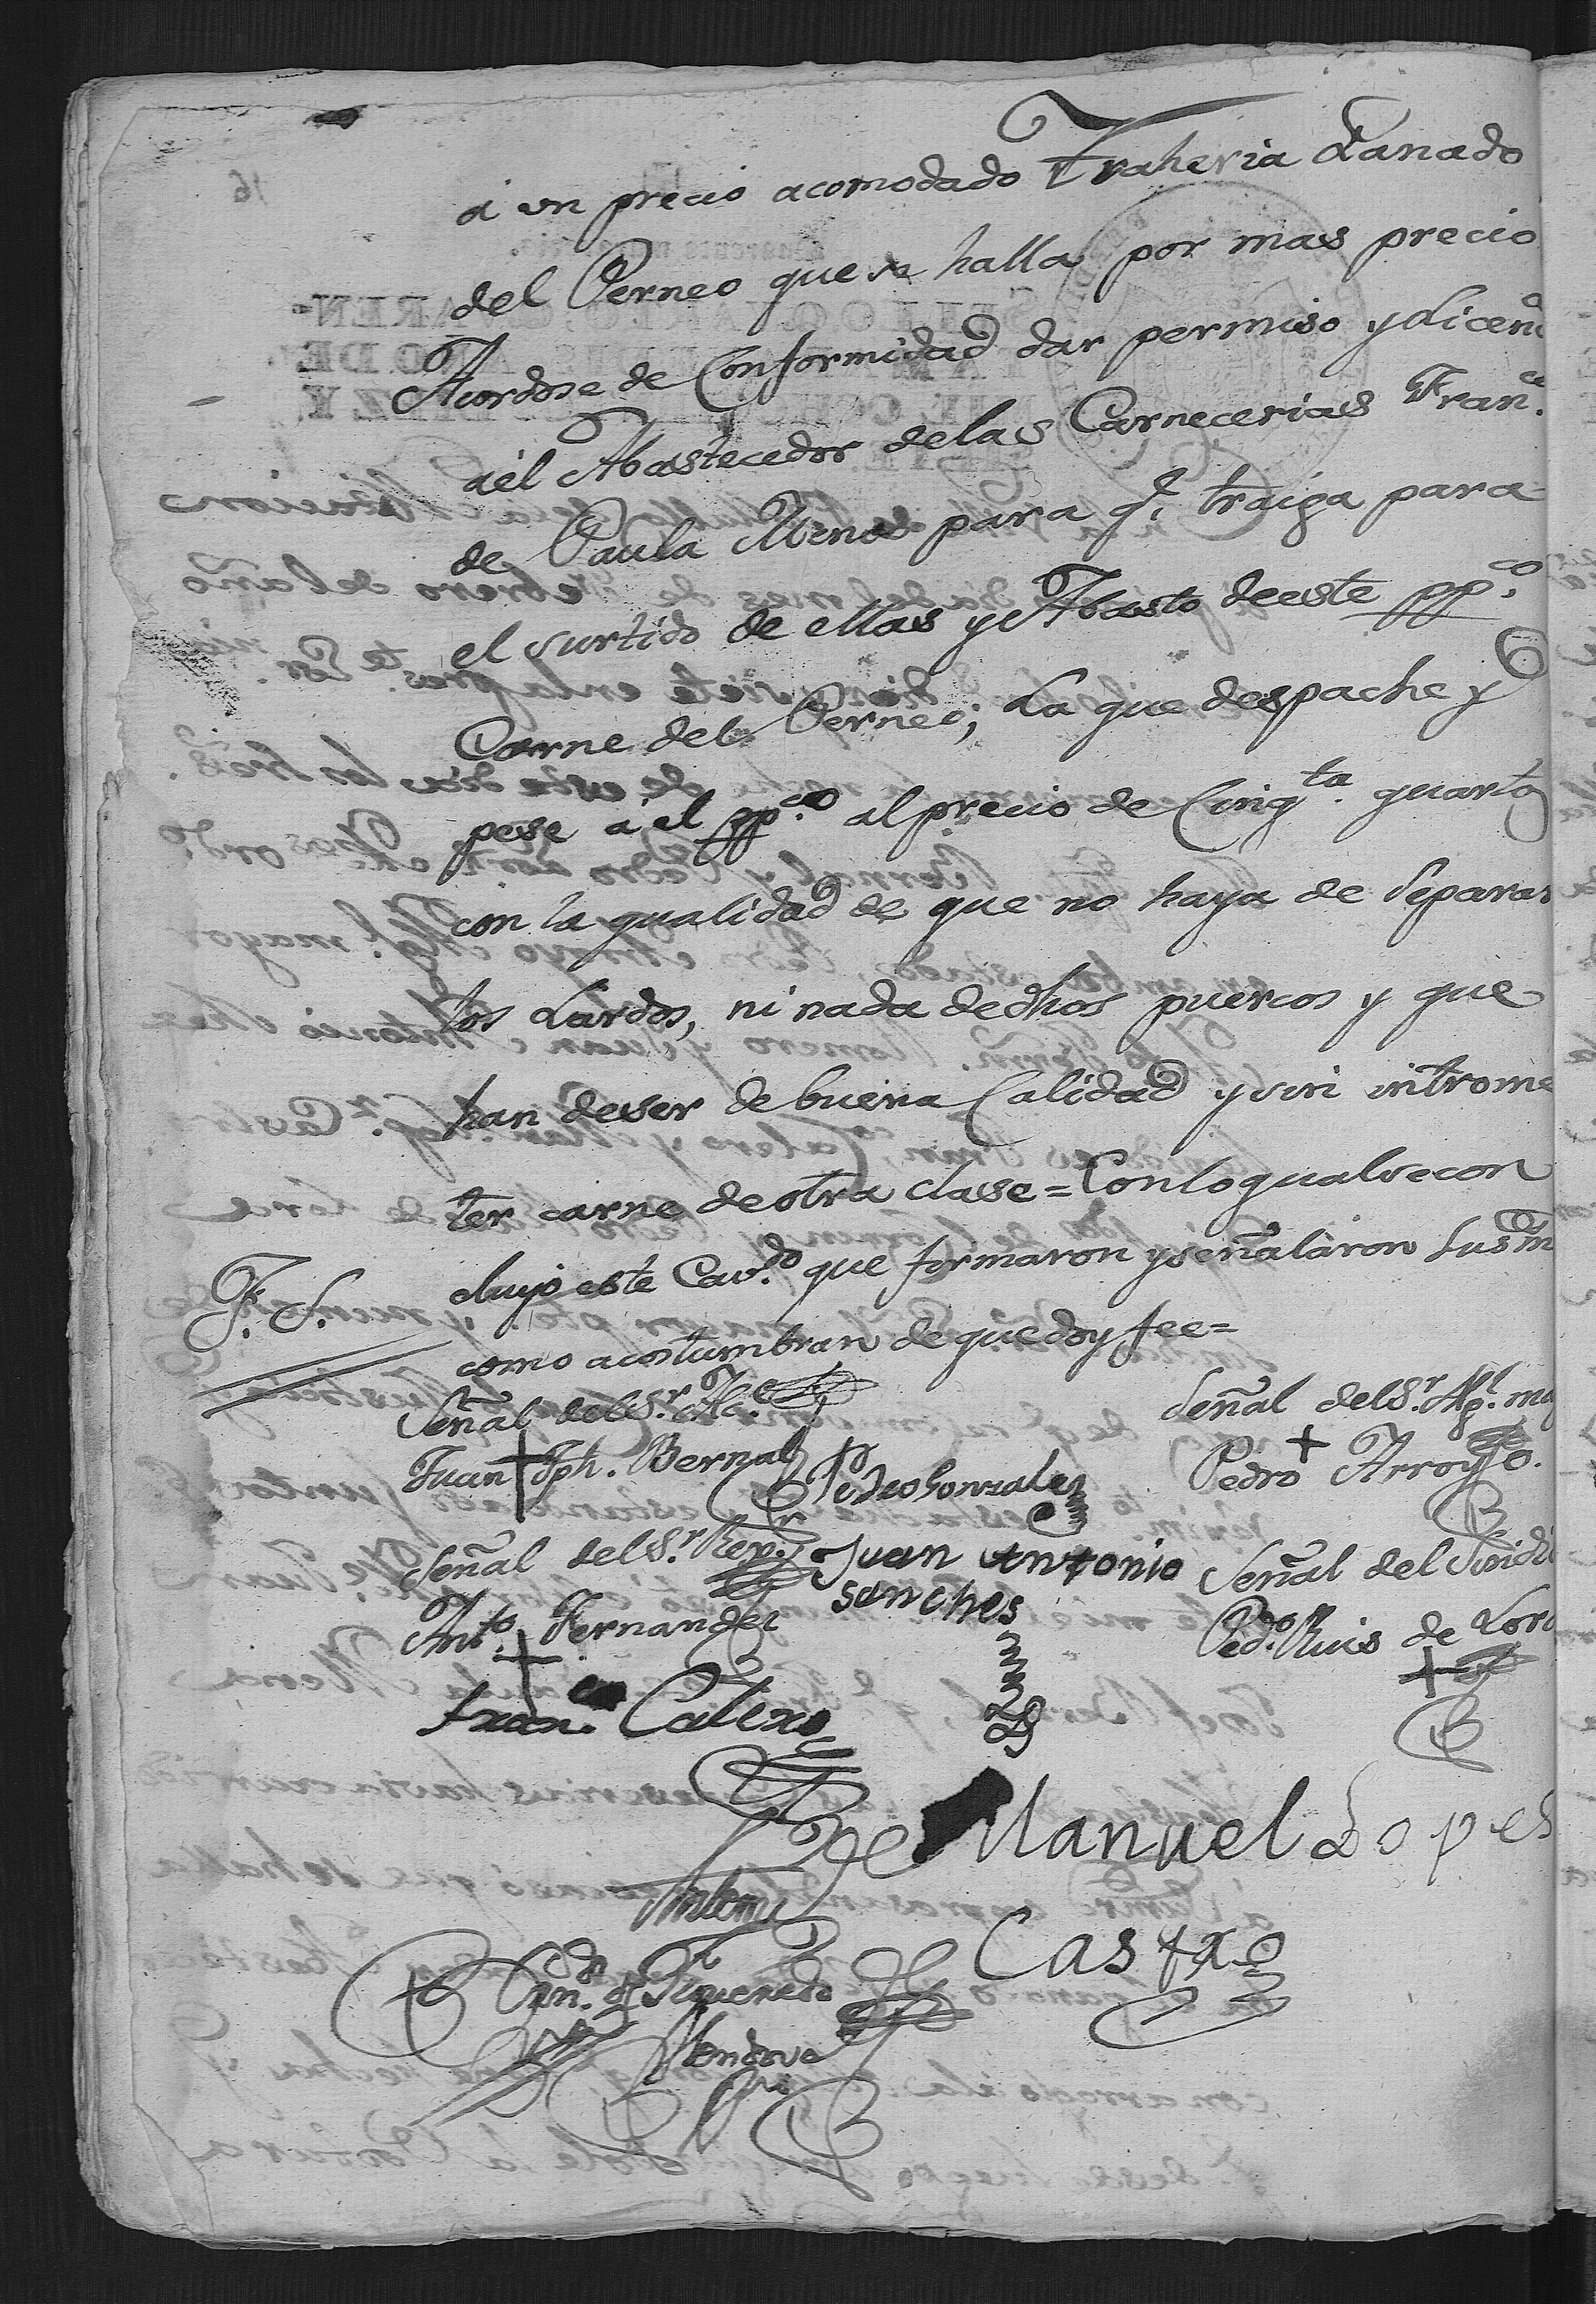 a un precio acomodado traheria Ganado
del Perneo que se halla por mas precio
Acordose de Conformidad dar permiso y Licenc
a el Abastecedor de las Carnecerias Fran.co
de Paula Mena para q.e traiga para
el surtido de ellas y Abasto de este pp.co
Carne del Perneo, La que despache y
pese a el pp.co al precio de Cinq.ta quartos
con la qualidad de que no haya de separar
los Lardos, ni nada de dhos puercos y que
han de ser de buena Calidad y sin introme
ter carne de otra clase = Con lo qual se con
cluyo este Cav.do que formaron y señalaron sus m
como acostumbran de que doy fee =
Señal del S.r Alc.e
Juan + Jph. Bernal
Pedro Gonzales
Señal del S.r Alg.l may
Pedro + Arroyo.
Señal del S.r Rex.r
Ant.o Fernandez
+
Juan Antonio
Sanches
Señal del Sindi
Ped.o Ruis de Lor
+
Fran.co Calero
Manuel Lopes
Castro
Antemi
Figueredo
Mendoza